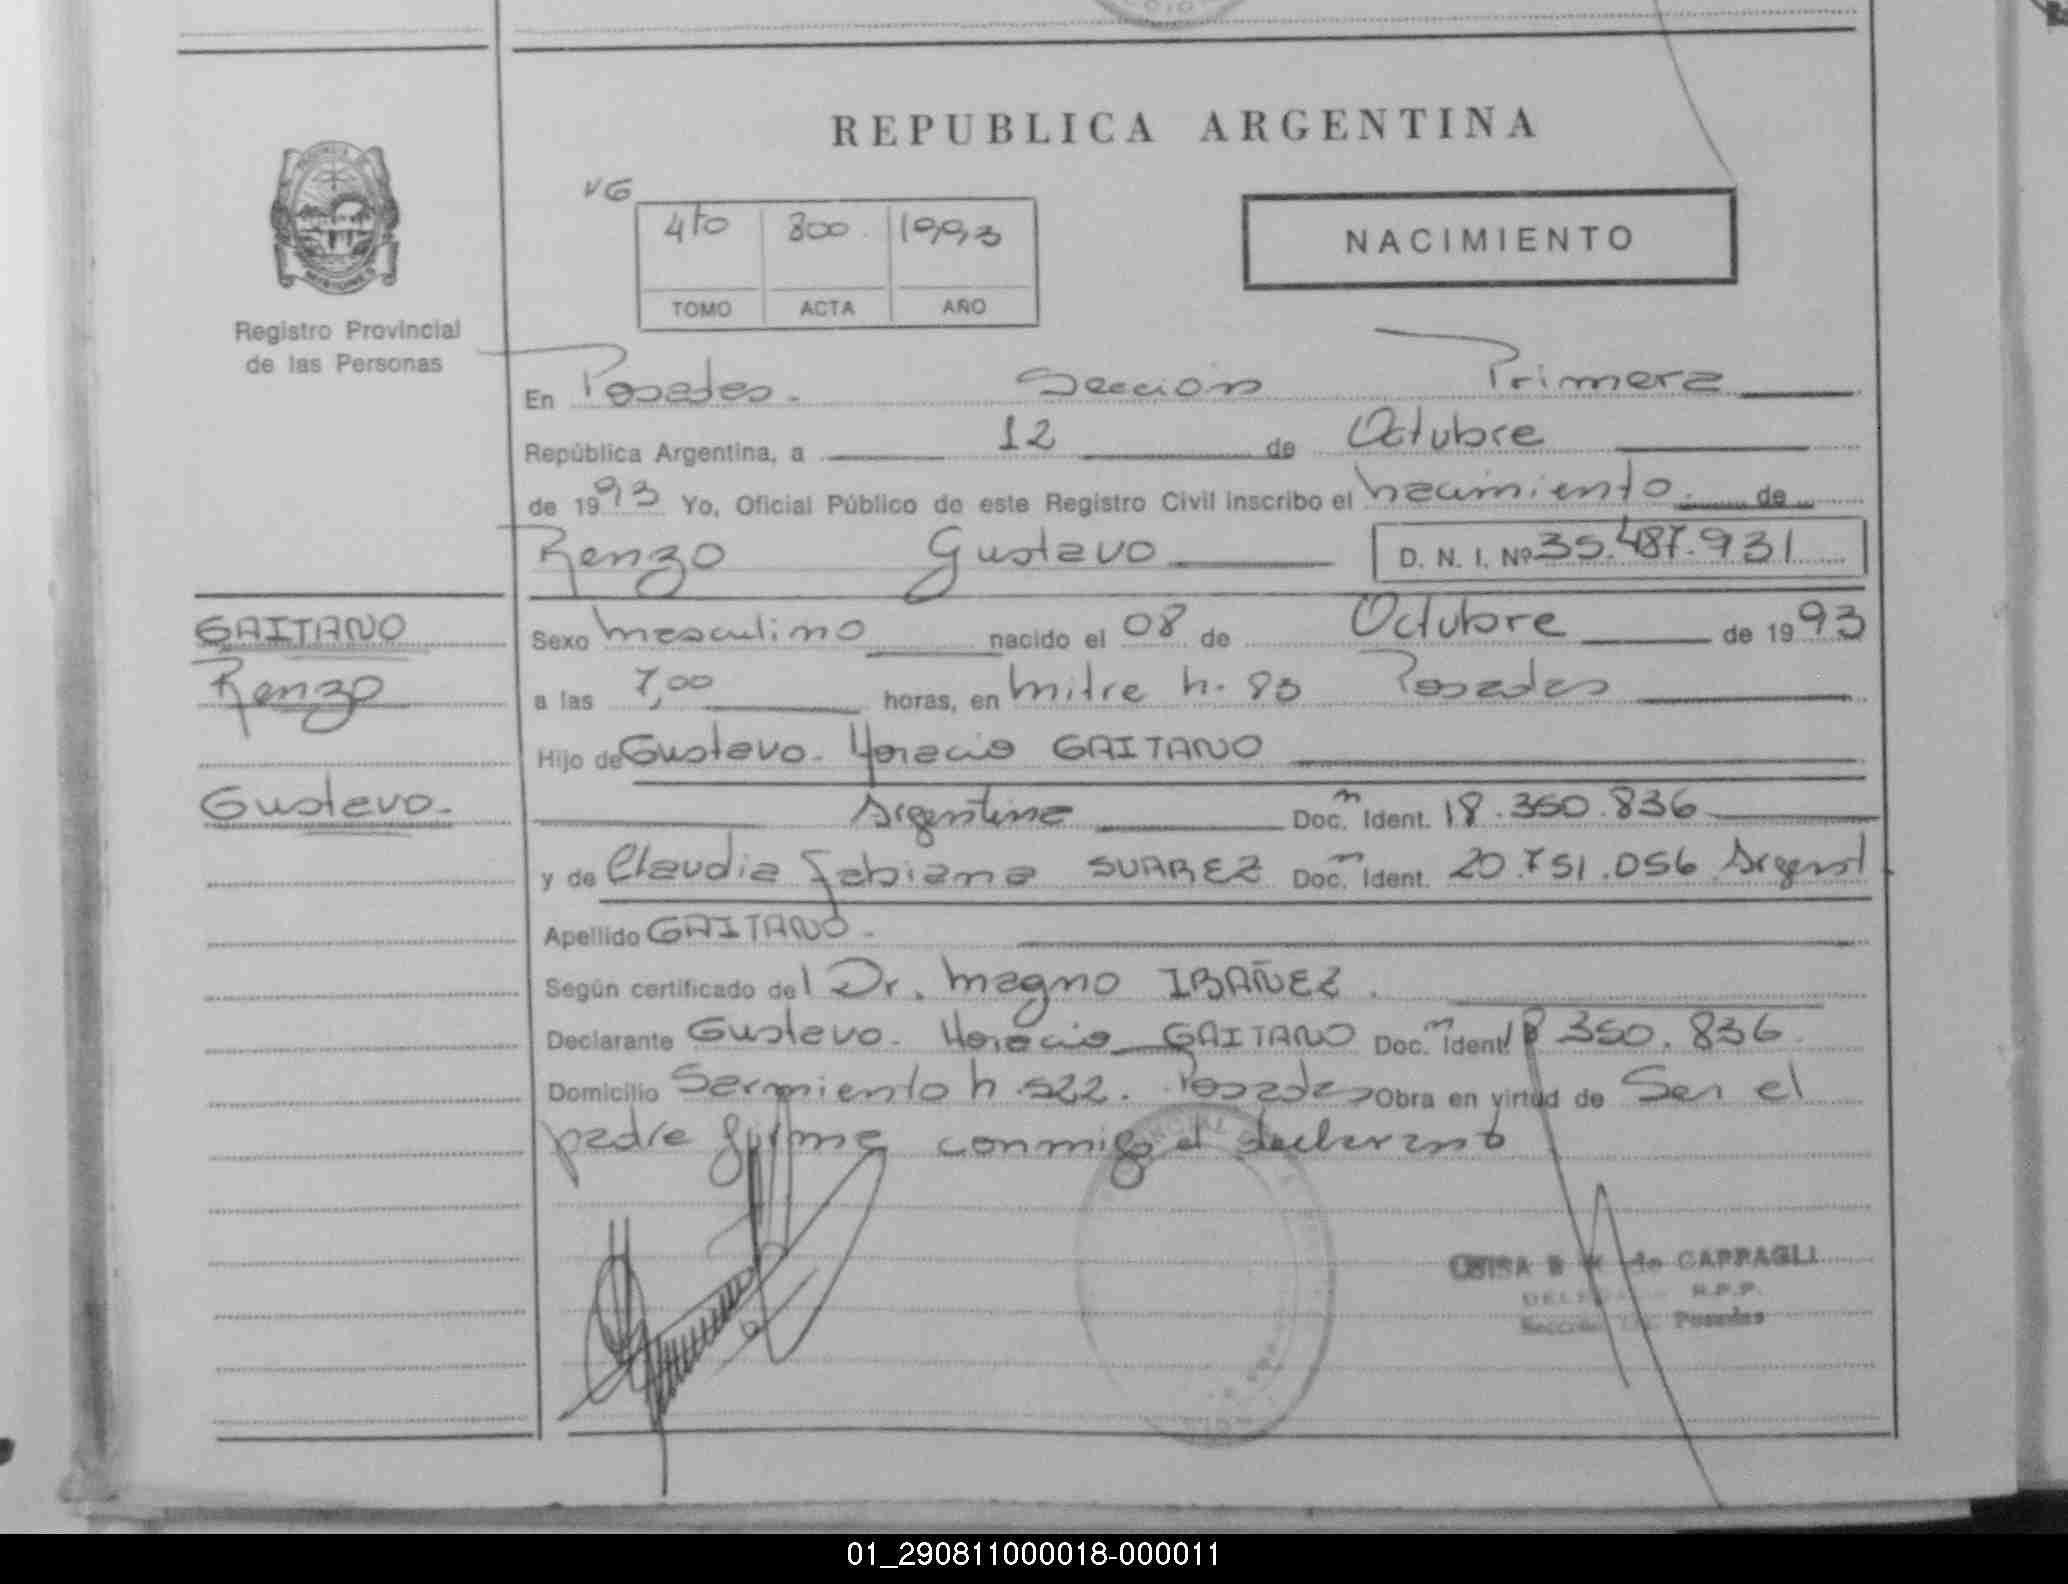 REPUBLICA ARGENTINA
VG
4to 800 1993
TOMO ACTA AÑO
NACIMIENTO
MISIONES
Registro Provincial
de las Personas
En Posadas. Sección Primera
República Argentina, a 12 de Octubre
de 1993 Yo, Oficial Público de este Registro Civil inscribo el nacimiento de
Renzo Gustavo D. N. I. Nº 35.487.931
GAITANO
Renzo
Gustavo.
Sexo masculino nacido el 08 de Octubre de 1993
a las 7,00 horas, en Mitre n. 83 Posadas
Hijo de Gustavo. Horacio GAITANO
Argentina Doc. m Ident. 18.350.836
y de Claudia Fabiana SUAREZ Doc. m Ident. 20.751.056 Argent
Apellido GAITANO.
Según certificado del Dr. Magno IBAÑEZ.
Declarante Gustavo. Horacio GAITANO Doc. m Ident. 18 350.836.
Domicilio Sarmiento n 522. Posadas Obra en virtud de Ser el
padre firma conmigo el declarante
de CAPPAGLI
R.P.P.
Sección Posadas
01_290811000018-000011